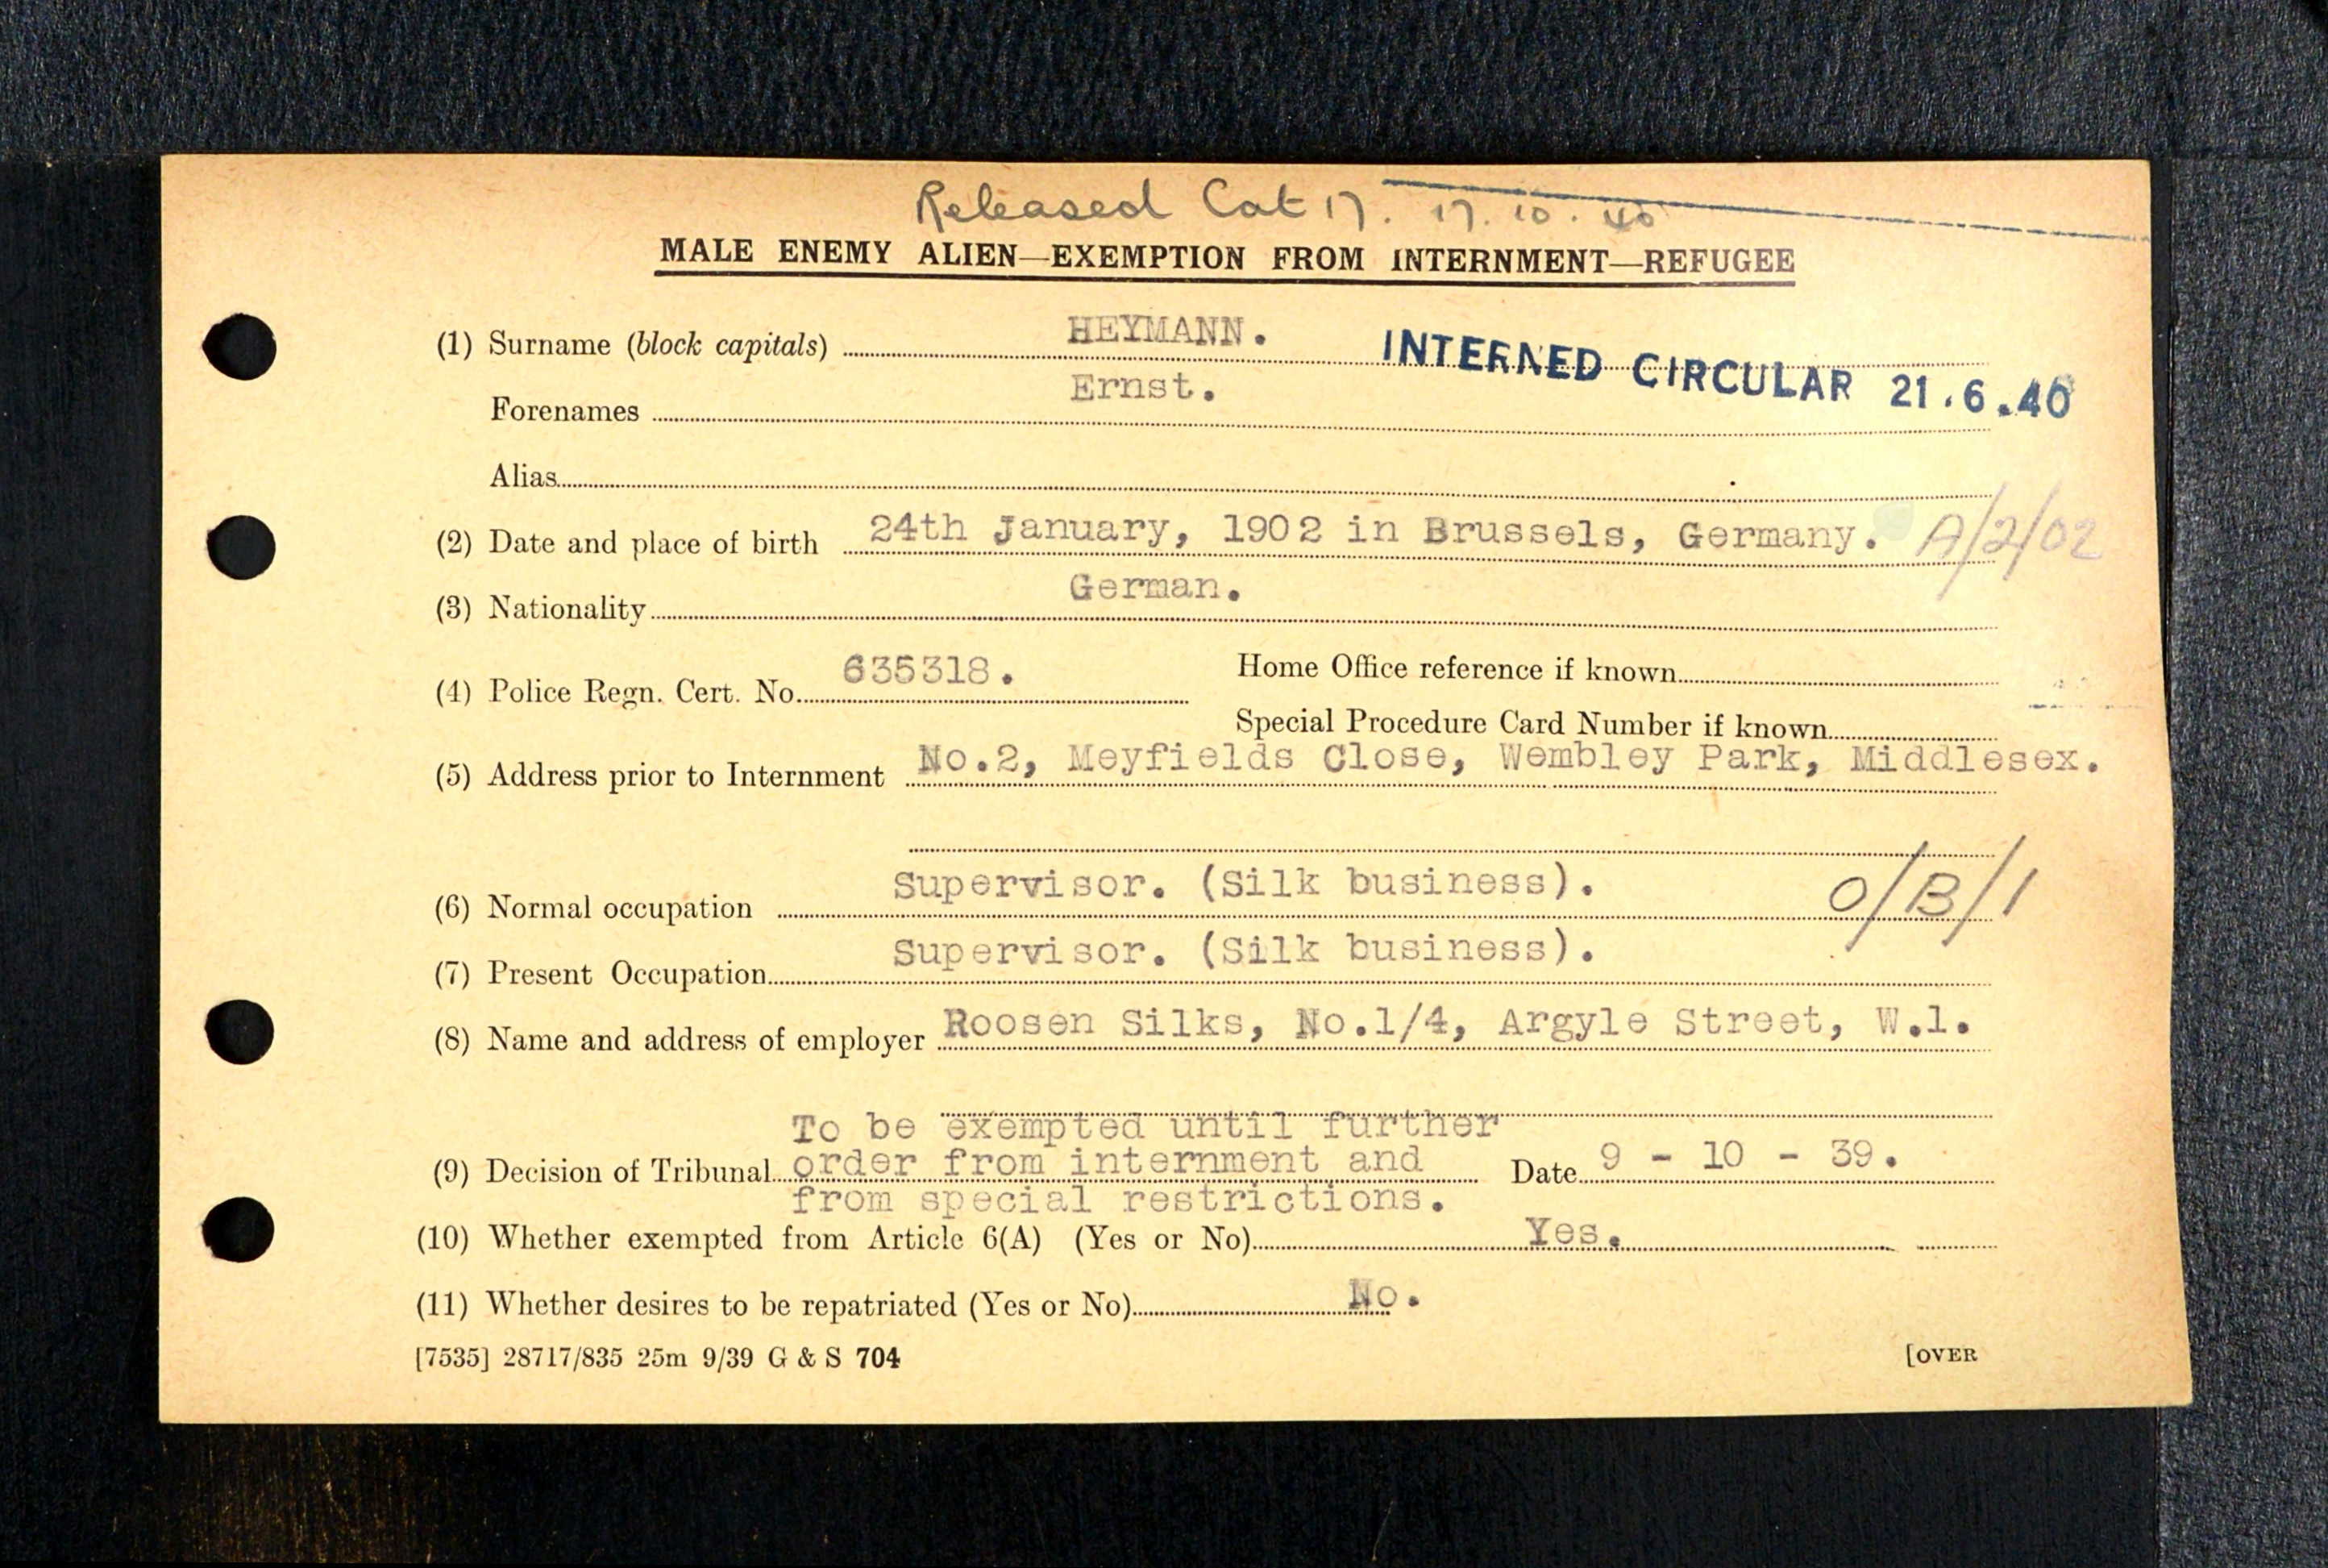 Released Cat 17. 17. 10. 40
MALE ENEMY ALIEN—EXEMPTION FROM INTERNMENT—REFUGEE
(1) Surname (block capitals) HEYMANN.
INTERNED CIRCULAR 21.6.40
Forenames Ernst.
Alias
(2) Date and place of birth 24th January, 1902 in Brussels, Germany. A/2/02
(3) Nationality German.
(4) Police Regn. Cert. No. 635318. Home Office reference if known
Special Procedure Card Number if known
(5) Address prior to Internment No.2, Meyfields Close, Wembley Park, Middlesex.
(6) Normal occupation Supervisor. (Silk business). O/B/1
(7) Present Occupation Supervisor. (Silk business).
(8) Name and address of employer Roosen Silks, No.1/4, Argyle Street, W.1.
To be exempted until further
(9) Decision of Tribunal order from internment and Date 9 - 10 - 39.
from special restrictions.
(10) Whether exempted from Article 6(A) (Yes or No) Yes.
(11) Whether desires to be repatriated (Yes or No) No.
[7535] 28717/835 25m 9/39 G & S 704 [OVER